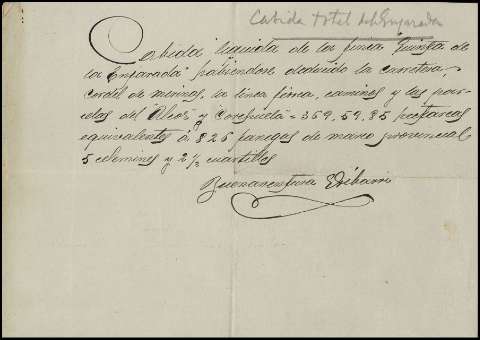 Cabida total de Enjarada
Cabida líquida de la finca Quinta de
la Enjarada habiendose deducido la carretera,
Cordel de merinas, la linea ferrea, caminos y las par-
celas del Alcor y Corchuela = 359,59,85 hectareas
equivalentes á 826 fanegas de marco provincial
5 celemines y 2 1/2 cuartillos
Buenaventura Uribarri